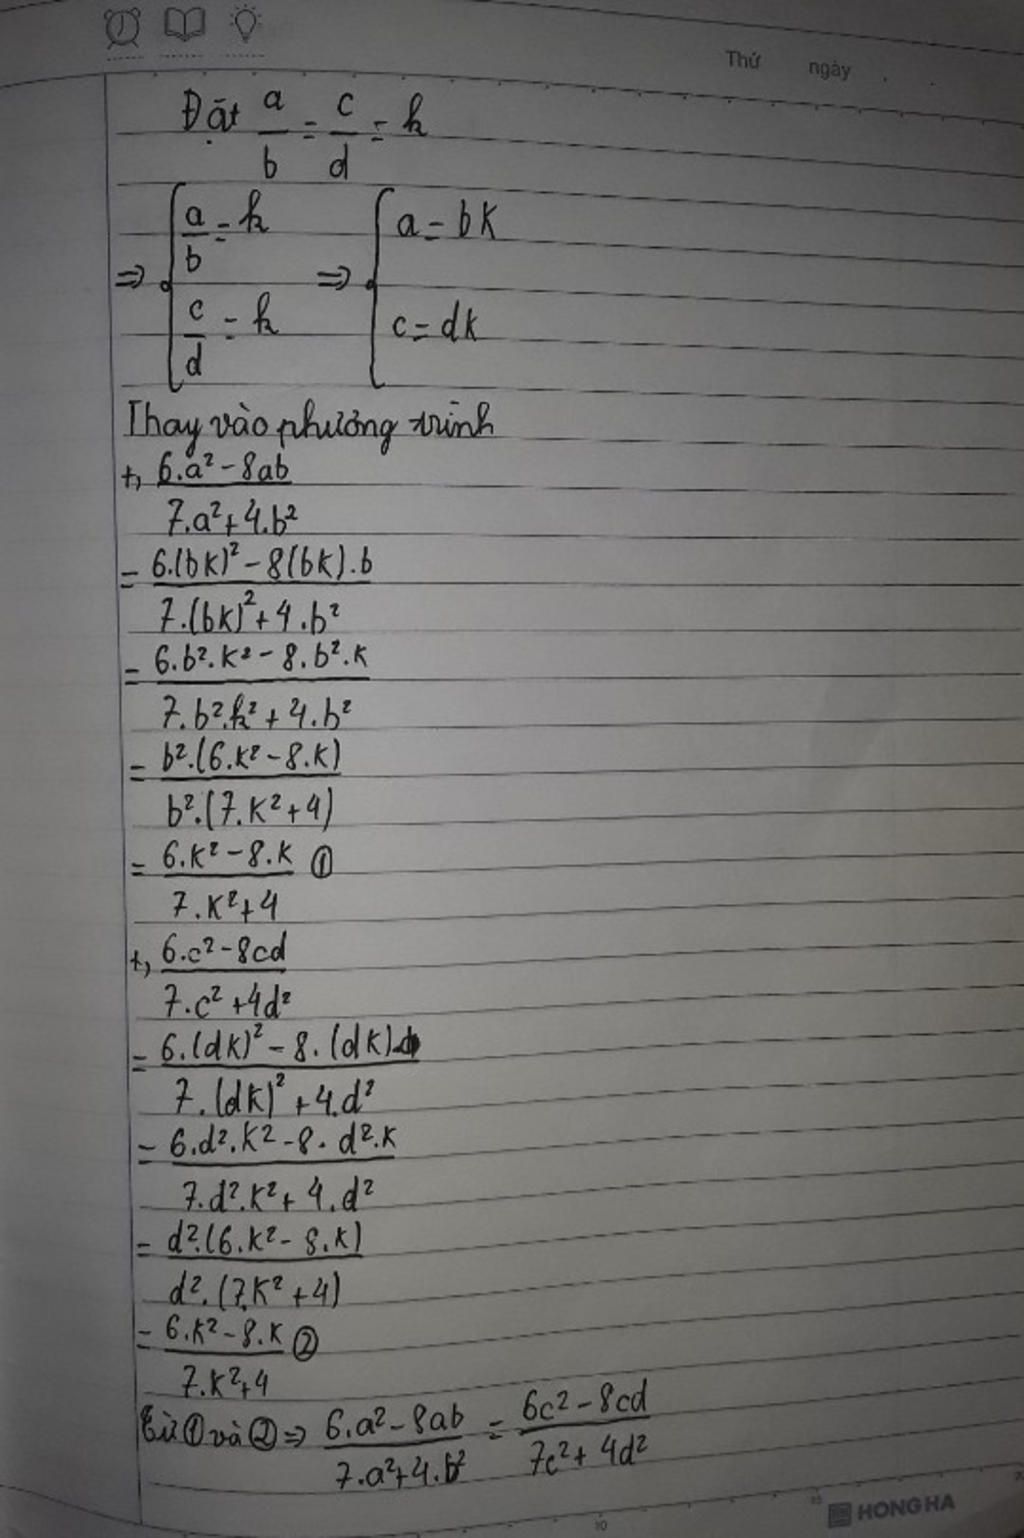 Thứ ngày
Đặt a/b = c/d = k
⇒ { a/b = k ⇒ { a = bk
c/d = k c = dk
Thay vào phương trình
+, 6.a² - 8ab
7.a² + 4.b²
= 6.(bk)² - 8(bk).b
7.(bk)² + 4.b²
= 6.b².k² - 8.b².k
7.b².k² + 4.b²
= b².(6.k² - 8.k)
b².(7.k² + 4)
= 6.k² - 8.k ①
7.k² + 4
+, 6.c² - 8cd
7.c² + 4d²
= 6.(dk)² - 8.(dk).d
7.(dk)² + 4.d²
= 6.d².k² - 8.d².k
7.d².k² + 4.d²
= d².(6.k² - 8.k)
d².(7.k² + 4)
= 6.k² - 8.k ②
7.k² + 4
Từ ① và ② ⇒ 6.a² - 8ab = 6c² - 8cd
7.a² + 4.b² 7c² + 4d²
10 15 HONG HA